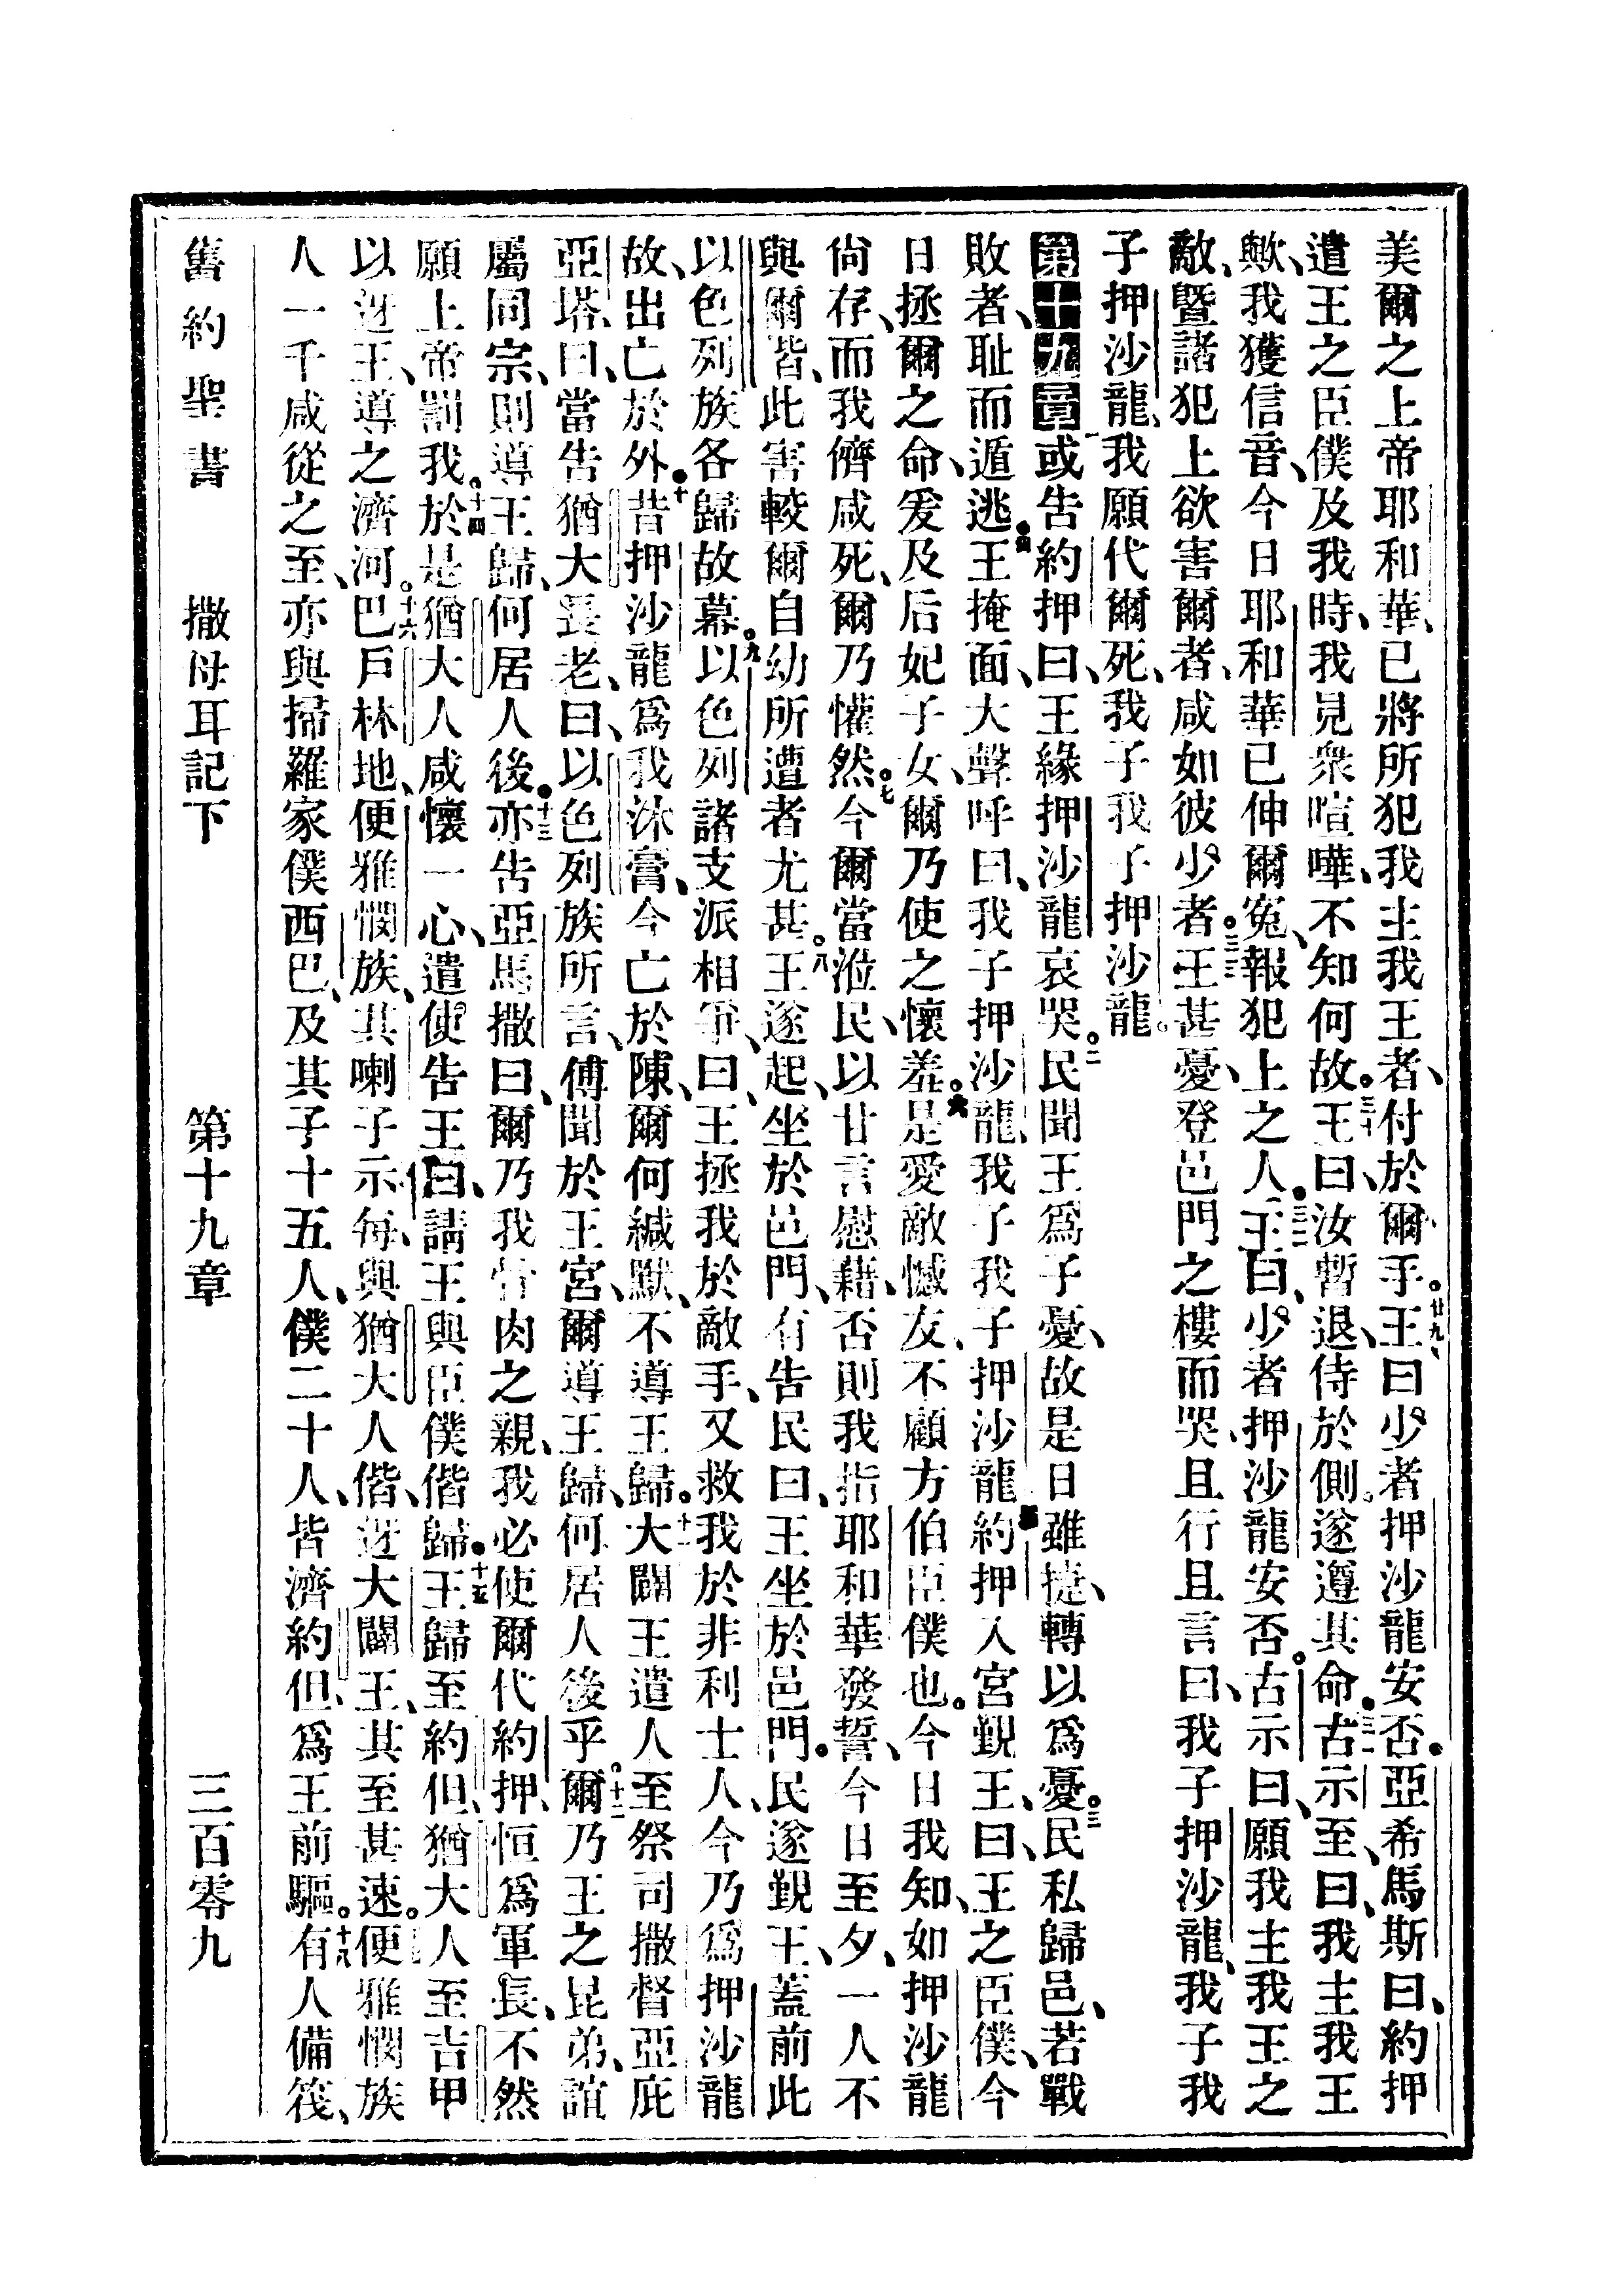 美爾之上帝耶和華、已將所犯我主我王者、付於爾手。廿九、王曰少者押沙龍安否。亞希馬斯曰、約押
遣王之臣僕及我時、我見衆喧嘩、不知何故。三十王曰、汝暫退、侍於側。遂遵其命。三一古示至、曰、我主我王
歟、我獲信音、今日耶和華已伸爾冤、報犯上之人。三二王曰、少者押沙龍安否。古示曰、願我主我王之
敵、暨諸犯上欲害爾者、咸如彼少者。三三王甚憂、登邑門之樓而哭、且行且言曰、我子押沙龍、我子我
子押沙龍、我願代爾死、我子我子押沙龍。
第十九章一或告約押曰、王緣押沙龍哀哭。二民聞王爲子憂、故是日雖捷、轉以爲憂。三民私歸邑、若戰
敗者、耻而遁逃。四王掩面、大聲呼曰、我子押沙龍、我子我子押沙龍。五約押入宮覲王、曰、王之臣僕、今
日拯爾之命、爰及后妃子女、爾乃使之懷羞。六是愛敵憾友、不顧方伯臣僕也。今日我知、如押沙龍
尙存、而我儕咸死、爾乃懽然。七今爾當涖民、以甘言慰藉、否則我指耶和華發誓、今日至夕、一人不
與爾皆、此害較爾自幼所遭者尤甚。八王遂起、坐於邑門、有告民曰、王坐於邑門。民遂覲王、蓋前此
以色列族各歸故幕。九以色列諸支派相爭、曰、王拯我於敵手、又救我於非利士人、今乃爲押沙龍
故、出亡於外。十昔押沙龍爲我沐膏、今亡於陳、爾何緘默、不導王歸。十一大闢王遣人至祭司撒督亞庇
亞塔、曰、當告猶大長老、曰、以色列族所言、傅聞於王宮、爾導王歸、何居人後乎。十二爾乃王之昆弟、誼
屬同宗、則導王歸、何居人後。十三亦告亞馬撒曰、爾乃我骨肉之親、我必使爾代約押、恒爲軍長、不然
願上帝罰我。十四於是猶大人咸懷一心、遣使告王曰、請王與臣僕偕歸。十五王歸至約但、猶大人至吉甲
以迓王、導之濟河。十六巴戶林地、便雅憫族、其喇子示每、與猶大人偕、迓大闢王、其至甚速。便雅憫族
人一千咸從之至、亦與掃羅家僕西巴、及其子十五人、僕二十人、皆濟約但、爲王前驅。十八有人備筏、
舊約聖書　撒母耳記下　第十九章　三百零九